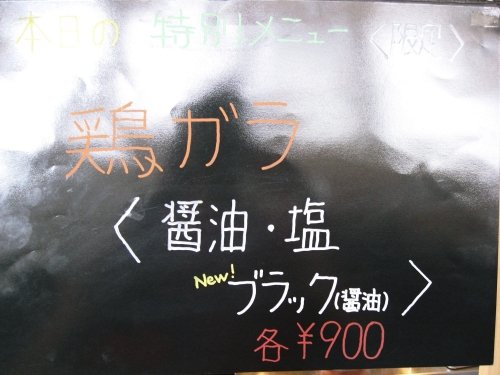 本日の 特別メニュー 〈限定〉
鶏ガラ
〈醤油・塩
New! ブラック(醤油)〉
各¥900